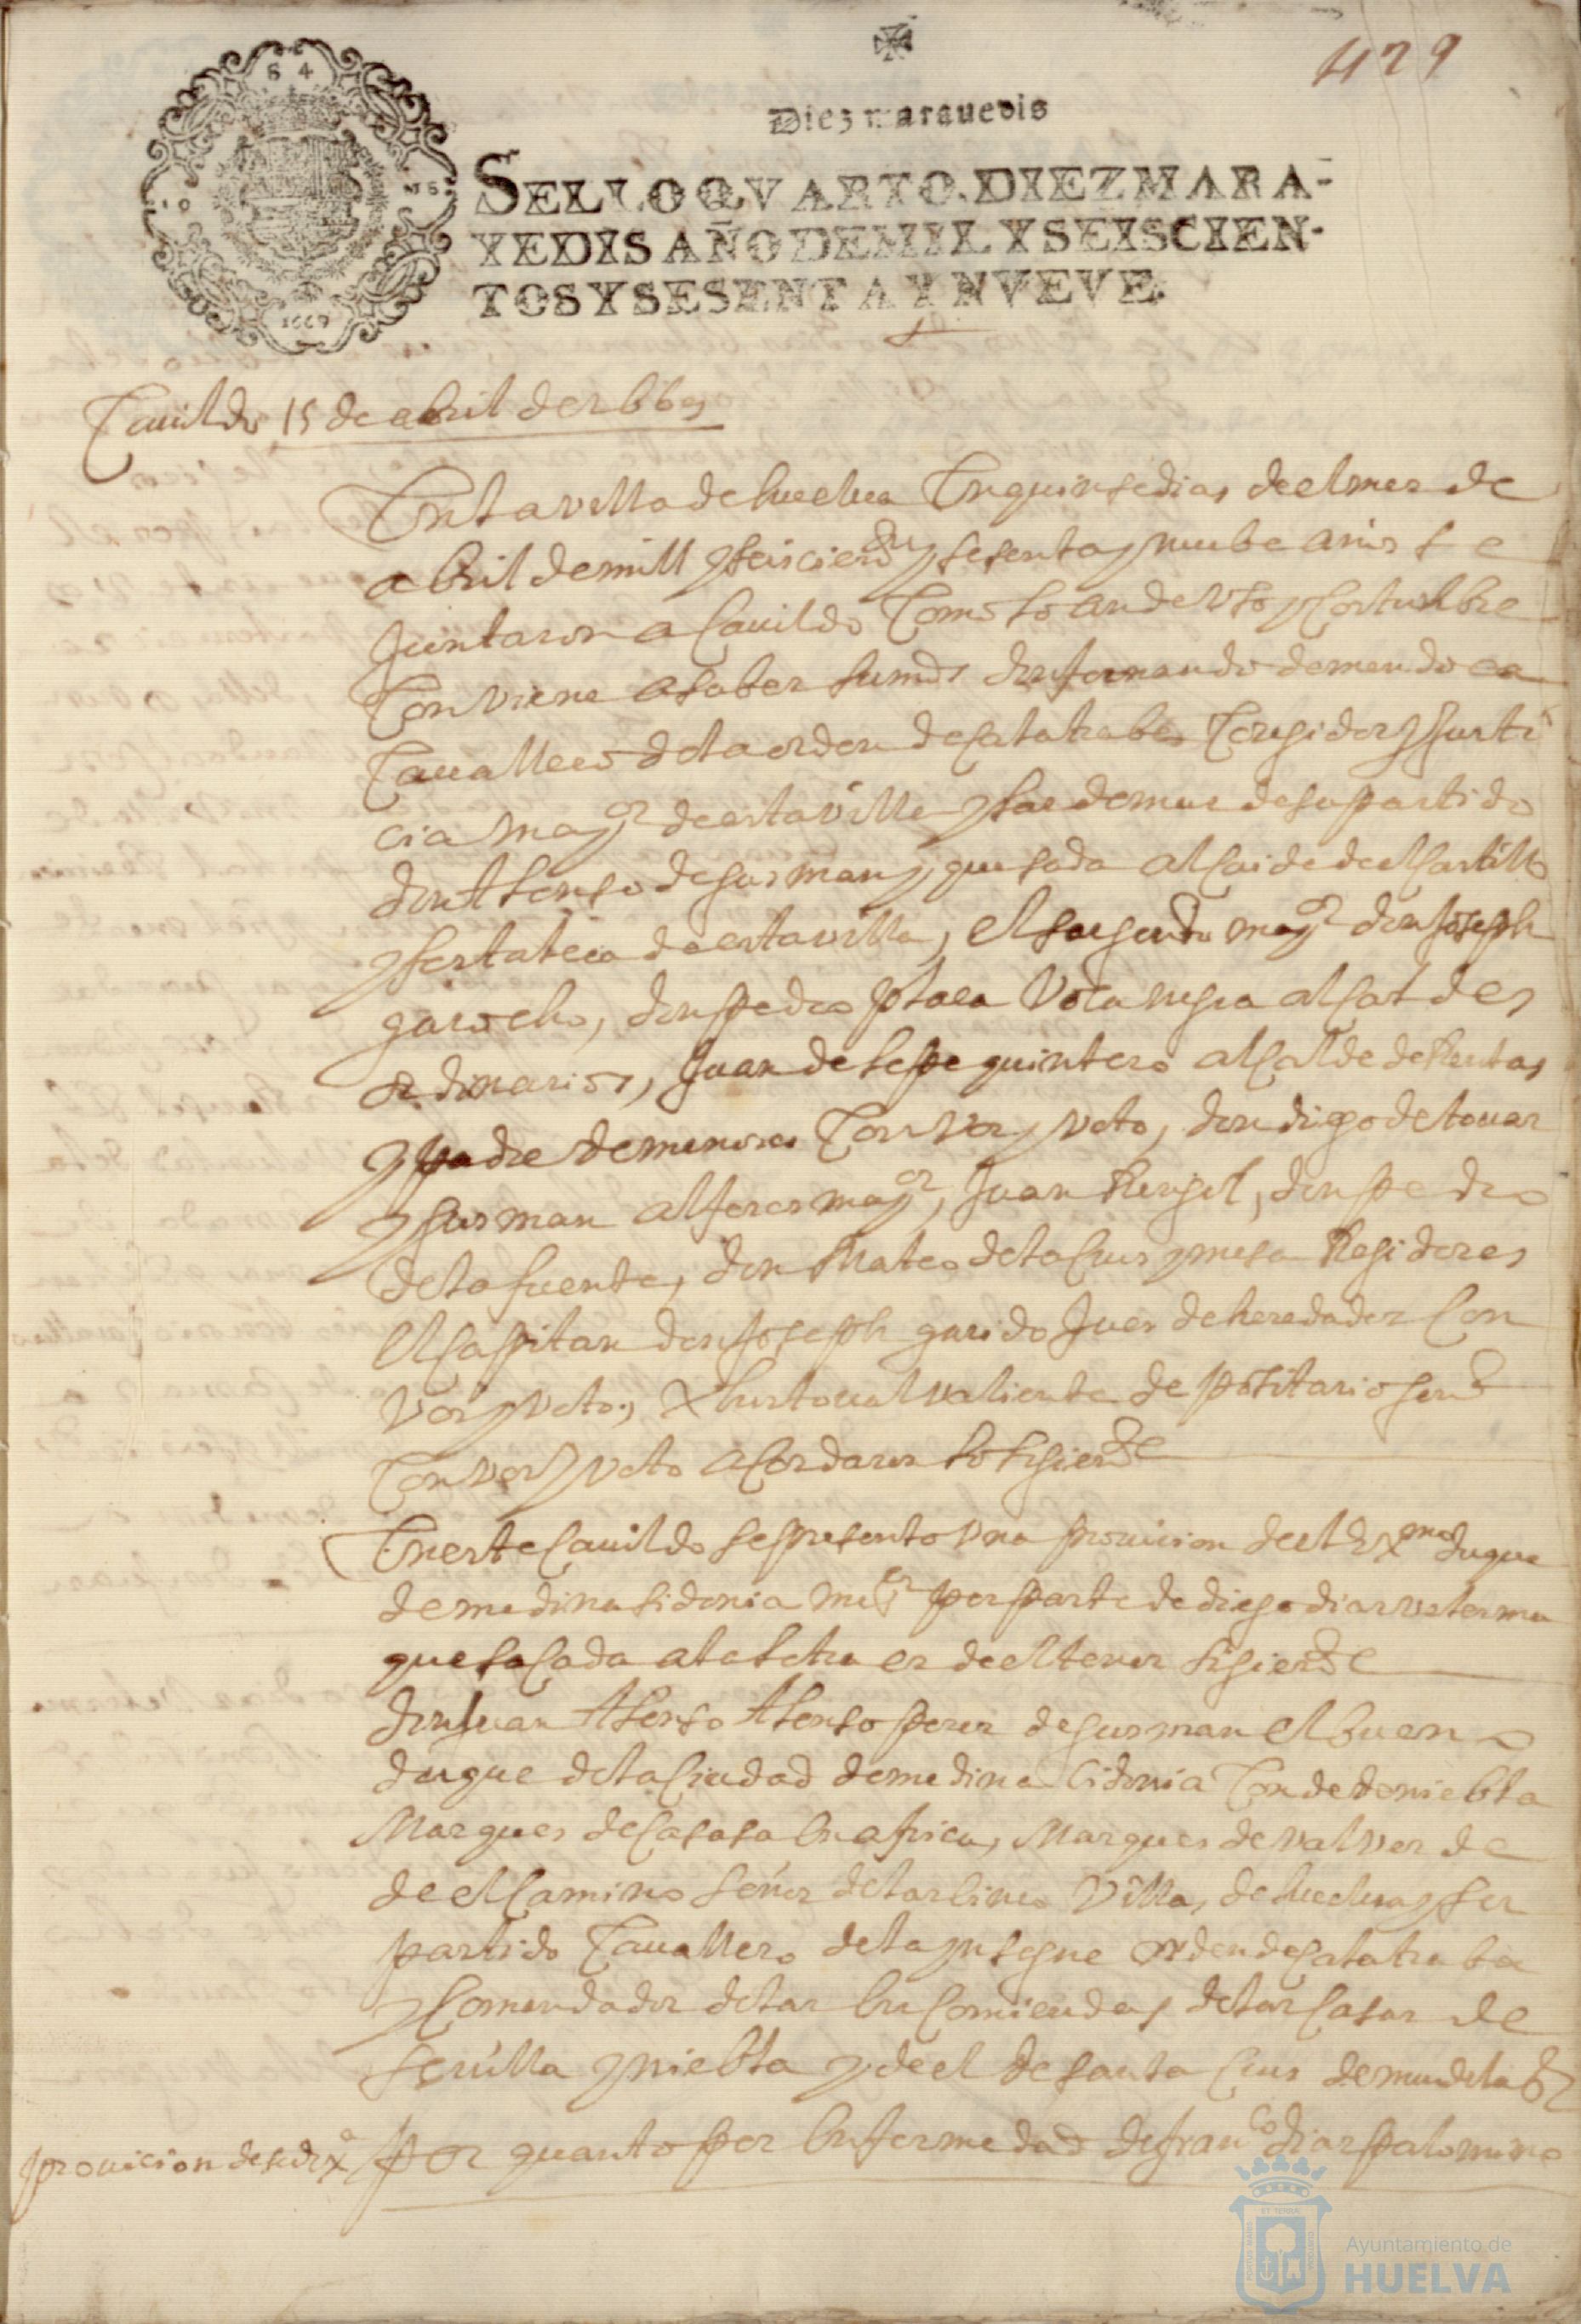 429
Diez marauedis
SELLO QVARTO, DIEZ MARA-
VEDIS AÑO DE MIL Y SEISCIEN-
TOS Y SESENTA Y NVEVE.
S 4
10 MS
1669
Cauildo 15 de abril de 1669
En la villa de huelua En quinse dias de el mes de
abril de mill y seiscientos y sesenta y nuebe años se
juntaron a Cauildo Como lo an de vso y Costunbre
Conviene a saber su md don fernando de mendoca
Cauallero de la orden de Calatraba Coregidor y Justi
cia mayor de esta villa y las demas de su partido
don Alonso de gusman y quesada alcaide de el Castillo
y fortaleca de esta villa, el sargento mayor don Joseph
garocho, don pedro plaça alcaldes
ordinarios, Juan de lepe quintero alcalde de Rentas
y padre de menores Con vos y voto, don diego de touar
y gusman alferes mayor, Juan Rengel, don pedro
de la fuente, don Mateo de la Crus y mesa Regidores
el Capitan don Joseph garido Jues de heredades Con
vos y voto, Xhristoual valiente depositario genl
Con vos y voto acordaron lo sigiente
En este Cauildo se presento vna prouicion de el exmo duque
de medina sidonia mi sr por parte de diego dias
que sacada a la letra es de el tenor sigiente
don Juan Alonso Alonso peres de gusman el bueno
duque de la Ciudad de medina Cidonia Conde de niebla
Marques de Casasa en africa, Marques de valverde
de el Camino señor de las cinco Villas, de huelua y ser
partido Cauallero de la ynsigne orden de Calatraba
y Comendador de las en Comiendas de las Casas de
seuilla y niebla y de el de santa Crus de mudela &
prouicion de su exa por quanto por enfermedad de franco dias palomino
Ayuntamiento de
HUELVA